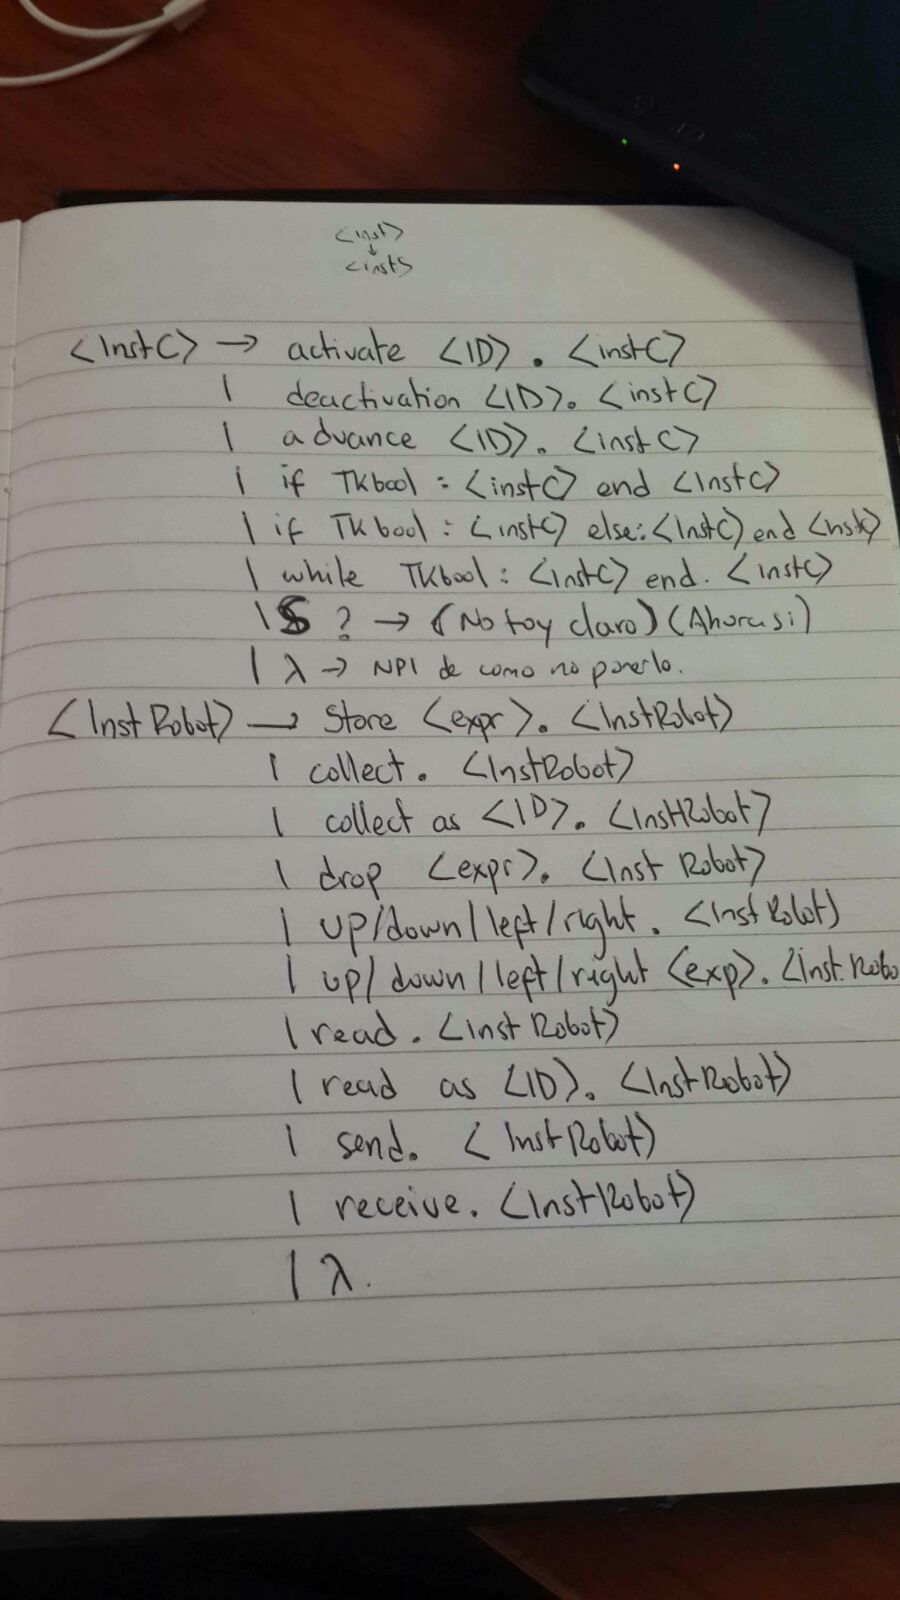 <inst>
↓
<insts
<InstC> → activate <ID> . <instC>
| deactivation <ID>. <instC>
| advance <ID>. <instC>
| if TKbool : <instC> end <InstC>
| if TKbool : <instC> else: <InstC> end <InstC>
| while TKbool : <instC> end. <instC>
| S ? → (No toy claro) (Ahora si)
| λ → NPI de como no ponerlo.
<InstRobot> → Store <expr>. <InstRobot>
| collect. <InstRobot>
| collect as <ID>. <InstRobot>
| drop <expr>. <Inst Robot>
| up/down/left/right. <Inst Robot>
| up/down/left/right <exp>. <Inst. Robo
| read. <inst Robot>
| read as <ID>. <InstRobot>
| send. <Inst Robot>
| receive. <InstRobot>
| λ.